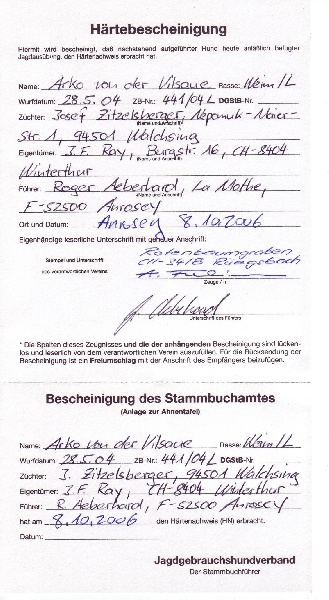 Härtebescheinigung
Hiermit wird bescheinigt, daß nachstehend aufgeführter Hund heute anläßlich befugter
Jagdausübung, den Härtenachweis erbracht hat.
Name: Arko von der Vilsaue Rasse: Weim/L
Wurfdatum: 28.5.04 ZB-Nr.: 441/04L DGStB-Nr.
Züchter: Josef Zitzelsberger, Nepomuk-Maier-
(Name und Anschrift)
Str. 1, 94501 Walchsing
Eigentümer: J.F. Ray, Burgstr. 16, CH-8404
(Name und Anschrift)
Winterthur
Führer: Roger Aeberhard, La Mothe,
(Name und Anschrift)
F-52500 Anrosey
Ort und Datum: Anrosey 8.10.2006
Eigenhändige leserliche Unterschrift mit genauer Anschrift:
Stempel und Unterschrift
CH-3418 Rüegsbach
des verantwortlichen Vereins
Zeuge / n
Unterschrift des Führers
* Die Spalten dieses Zeugnisses und die der anhängenden Bescheinigung sind lücken-
los und leserlich von dem verantwortlichen Verein auszufüllen. Für die Rücksendung der
Bescheinigung ist ein Freiumschlag mit der Anschrift des Empfängers beizufügen.
Bescheinigung des Stammbuchamtes
(Anlage zur Ahnentafel)
Name: Arko von der Vilsaue Rasse: Weim/L
Wurfdatum 28.5.04 ZB-Nr.: 441/04L DGStB-Nr.
Züchter: J. Zitzelsberger, 94501 Walchsing
Eigentümer: J.F. Ray, CH-8404 Winterthur
Führer: R. Aeberhard, F-52500 Anrosey
hat am 8.10.2006 den Härtenachweis (HN) erbracht.
Datum:
Jagdgebrauchshundverband
Der Stammbuchführer